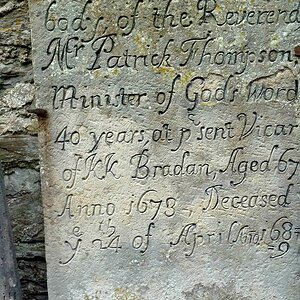 body of the Reverend
Mr Patrick Thompson,
Minister of Gods Word
40 years at p'sent Vicar
of KK Bradan, Aged 67
Anno 1678, Deceased
ye 24th of April